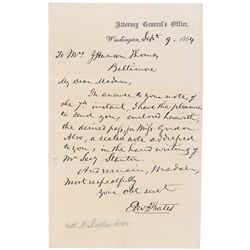 Attorney General's Office,
Washington, Sept. 9, 1864
To Mrs J Hanson Thomas
Baltimore
My Dear Madam,
In answer to your note of
the 7th instant, I have the pleasure
to send you, enclosed herewith,
the desired pass, for Miss Gordon.
Also, a sealed note addressed
to you, in the hand writing of
Mr Secy Stanton.
And remain, Madam,
Most respectfully
your obt servt
Edw Bates